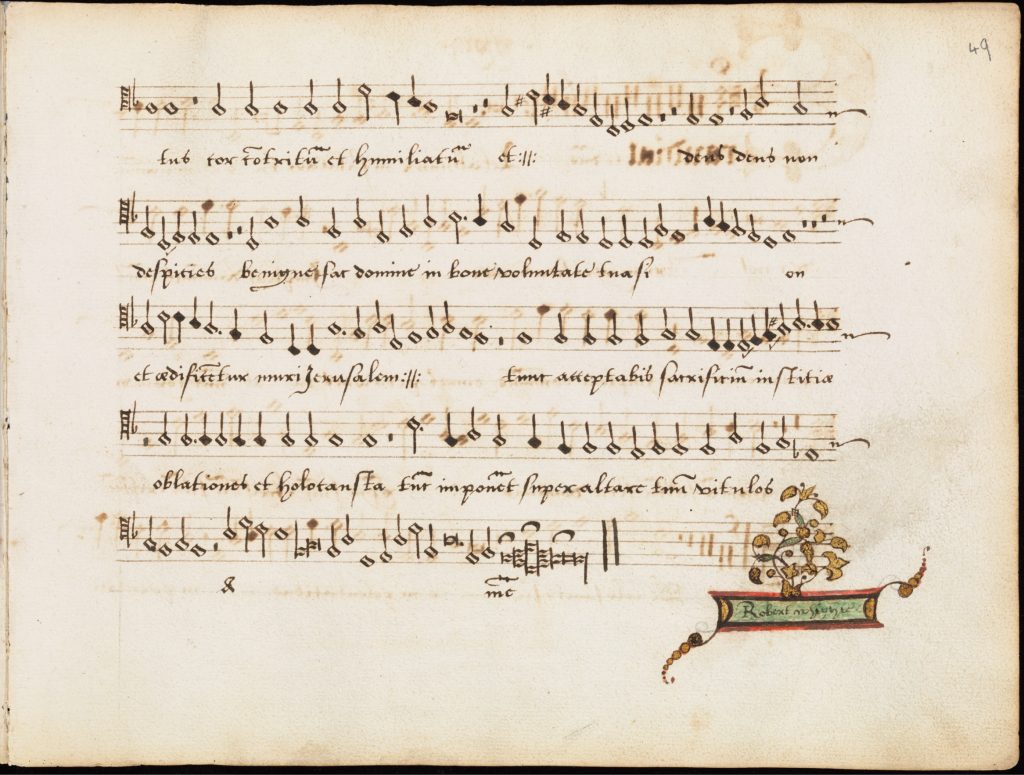 49
tus cor cōtritũ et humiliatũ et :||: deus deus non
despicies benigne fac domine in bone voluntate tua si on
et ædificẽtur muri Jerusalem :||: tunc acceptabis sacrificiũ iustitiæ
oblationes et holocausta tũc imponẽt super altare tuũ vitulos
&
Robert